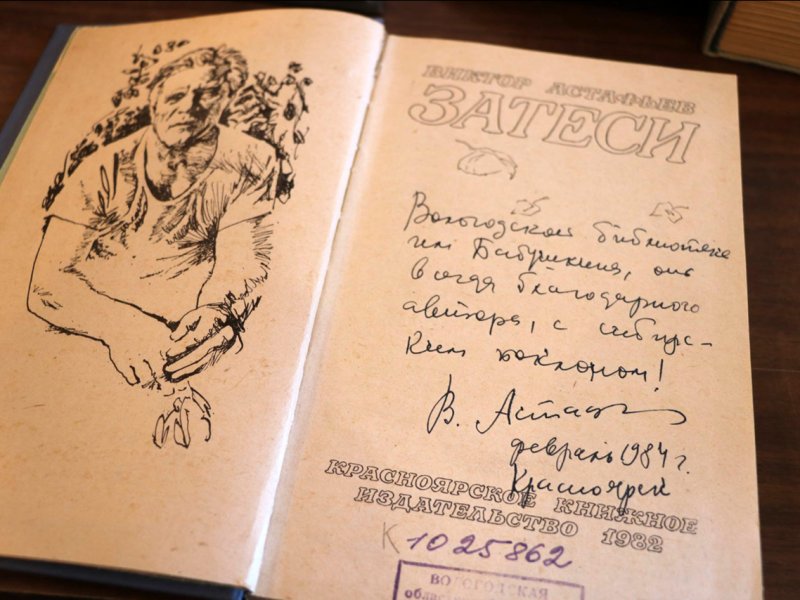 ВИКТОР АСТАФЬЕВ
ЗАТЕСИ
Вологодской библиотеке
им Бабушкина, от
всегда благодарного
автора, с сибирс-
ким поклоном!
В. Астафьев
февраль 1984 г.
Красноярск
КРАСНОЯРСКОЕ КНИЖНОЕ
ИЗДАТЕЛЬСТВО 1982
К 1025862
ВОЛОГОДСКАЯ